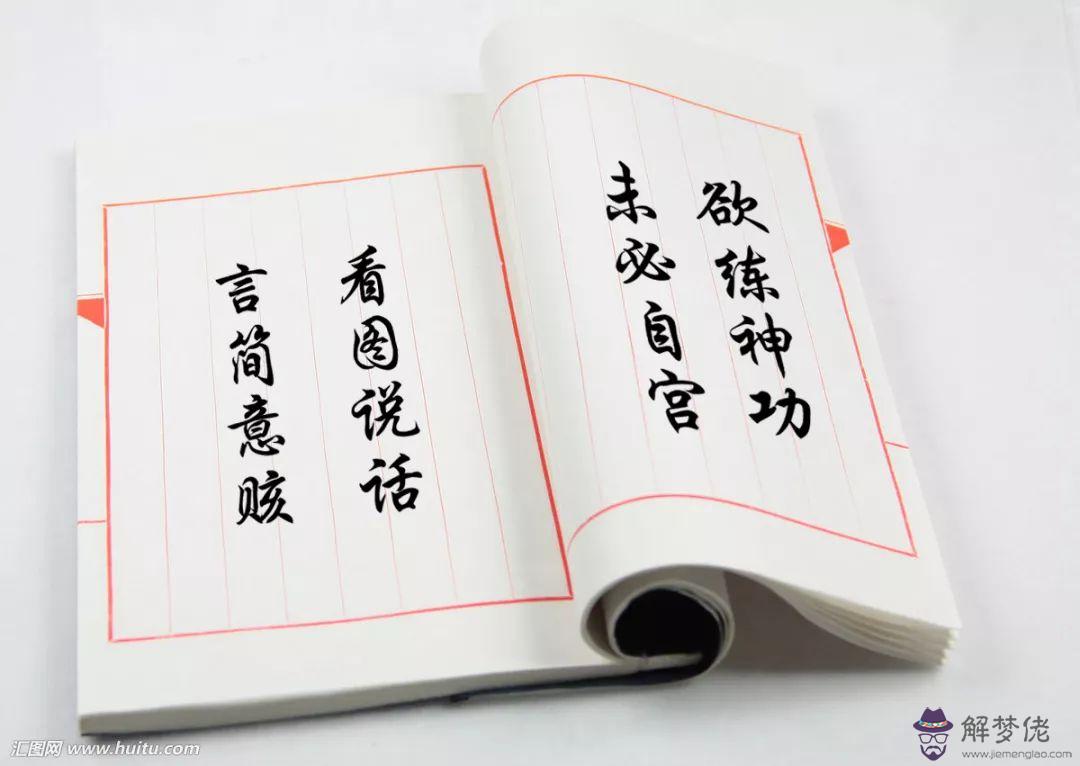 欲练神功
未必自宫
看图说话
言简意赅
汇图网 www.huitu.com
解梦佬
www.jiemenglao.com